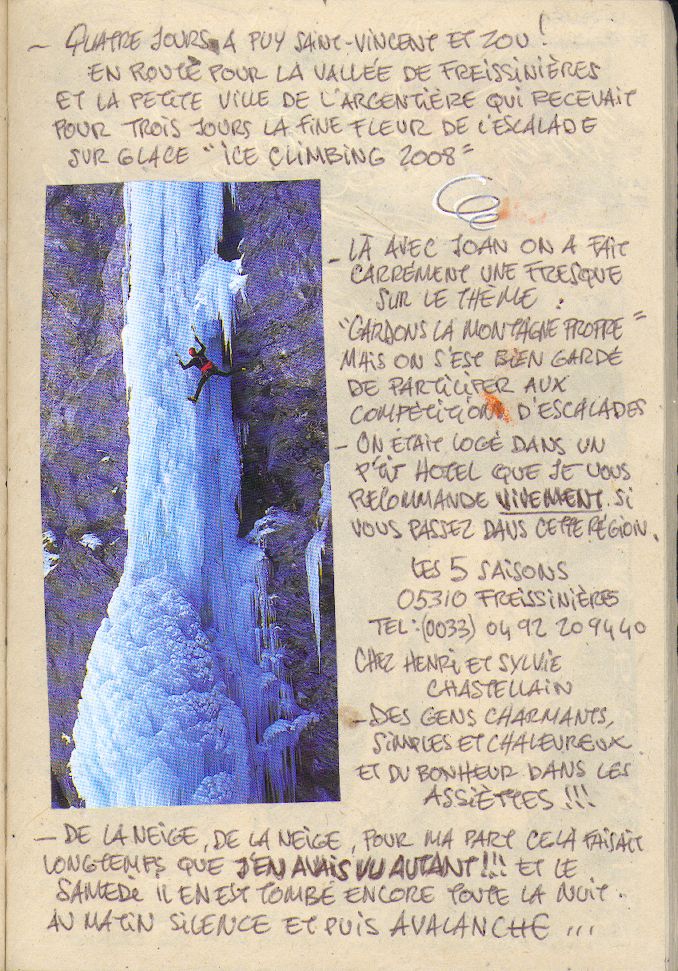 - QUATRE JOURS A PUY SAINT-VINCENT ET ZOU !
EN ROUTE POUR LA VALLÉE DE FREISSINIÈRES
ET LA PETITE VILLE DE L'ARGENTIÈRE QUI RECEVAIT
POUR TROIS JOURS LA FINE FLEUR DE L'ESCALADE
SUR GLACE "ICE CLIMBING 2008"
- LÀ AVEC JOAN ON A FAIT
CARRÉMENT UNE FRESQUE
SUR LE THÈME :
"GARDONS LA MONTAGNE PROPRE"
MAIS ON S'EST BIEN GARDÉ
DE PARTICIPER AUX
COMPÉTITIONS D'ESCALADES
- ON ÉTAIT LOGÉ DANS UN
P'TIT HOTEL QUE JE VOUS
RECOMMANDE VIVEMENT SI
VOUS PASSEZ DANS CETTE RÉGION.
LES 5 SAISONS
05310 FREISSINIÈRES
TEL : (0033) 04 92 20 94 40
CHEZ HENRI ET SYLVIE
CHASTELLAIN
- DES GENS CHARMANTS,
SIMPLES ET CHALEUREUX
ET DU BONHEUR DANS LES
ASSIÈTTES !!!
- DE LA NEIGE, DE LA NEIGE, POUR MA PART CELA FAISAIT
LONGTEMPS QUE J'EN AVAIS VU AUTANT !!! ET LE
SAMEDI IL EN EST TOMBÉ ENCORE TOUTE LA NUIT.
AU MATIN SILENCE ET PUIS AVALANCHE ...